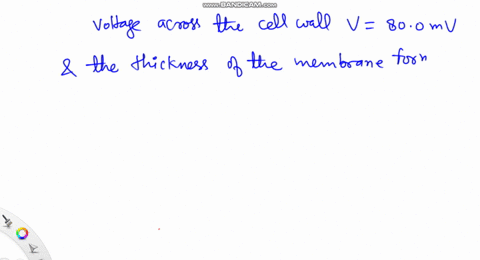 www.BANDICAM.com
voltage across the cell wall V = 80.0 mV
& the thickness of the membrane form